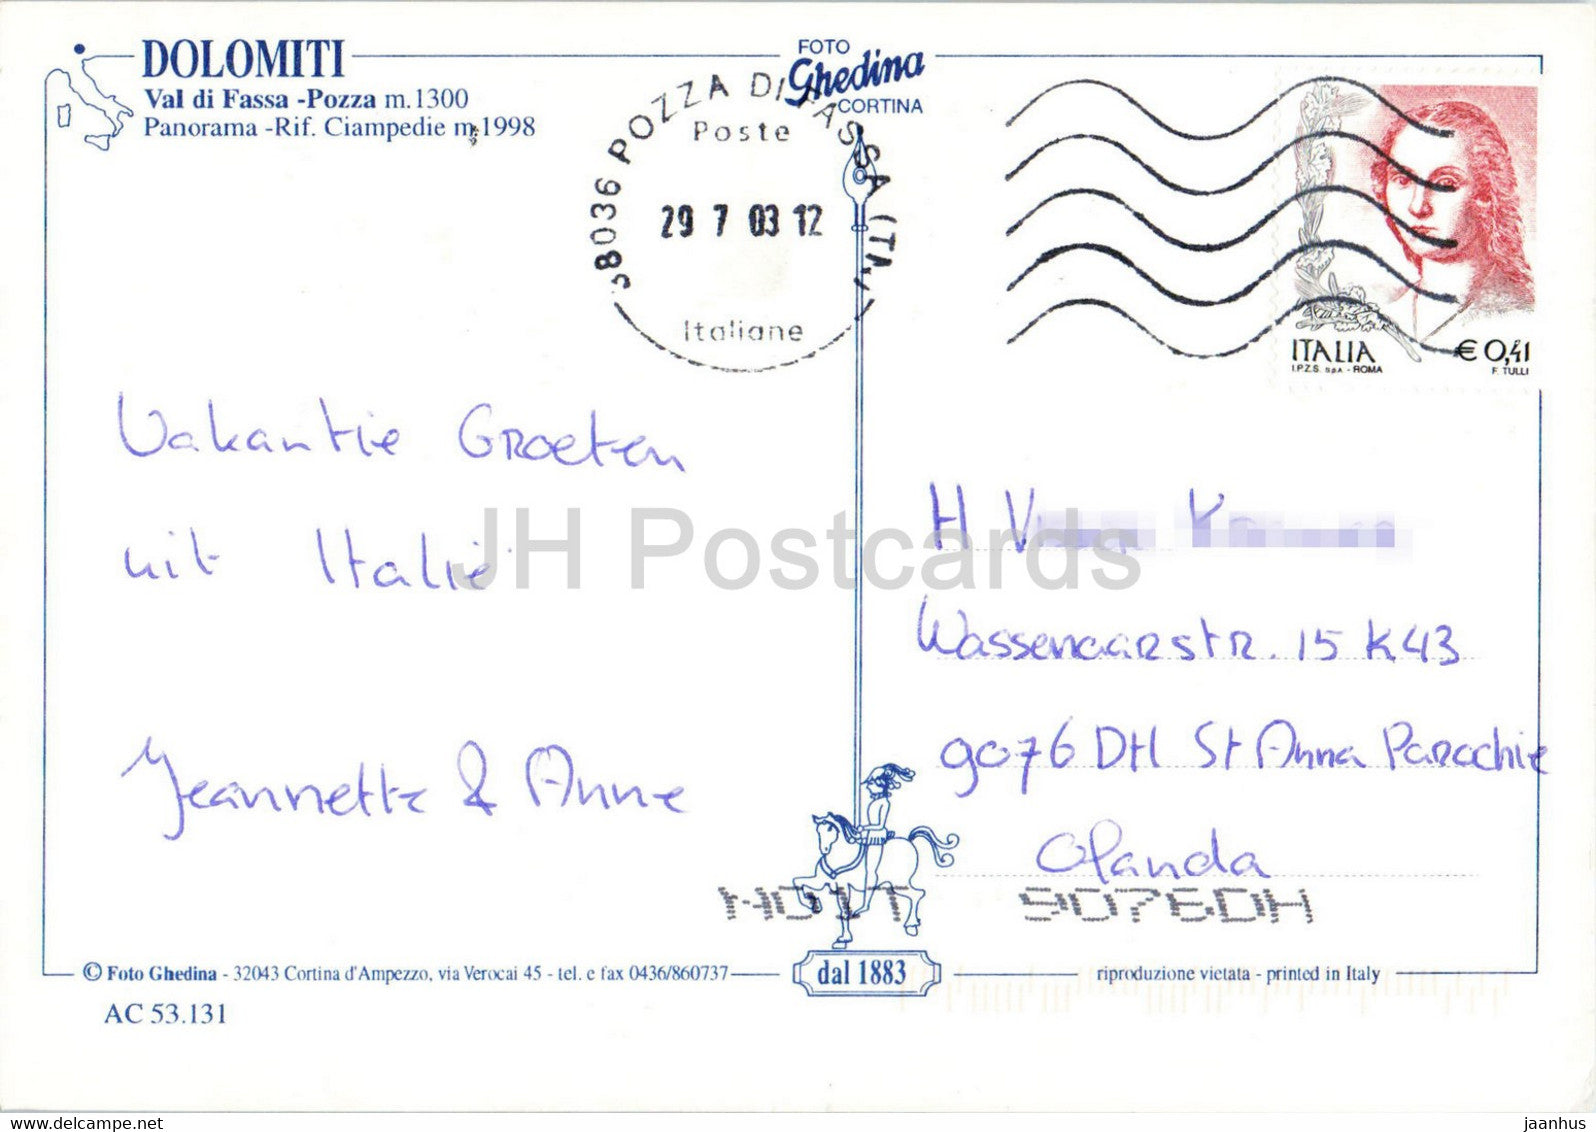 DOLOMITI
Val di Fassa -Pozza m.1300
Panorama -Rif. Ciampedie m.1998
FOTO
Ghedina
CORTINA
38036 POZZA DI FASSA (TN)
Poste
29 7 03 12
Italiane
ITALIA € 0,41
I.P.Z.S. S.p.A. - ROMA F. TULLI
Vakantie Groeten
uit Italië
Jeannette & Anne
H V
Wassenaarstr. 15 K43
9076 DH St Anna Parochie
Olanda
9076DH
JH Postcards
© Foto Ghedina - 32043 Cortina d'Ampezzo, via Verocai 45 - tel. e fax 0436/860737
dal 1883
riproduzione vietata - printed in Italy
AC 53.131
jaanhus